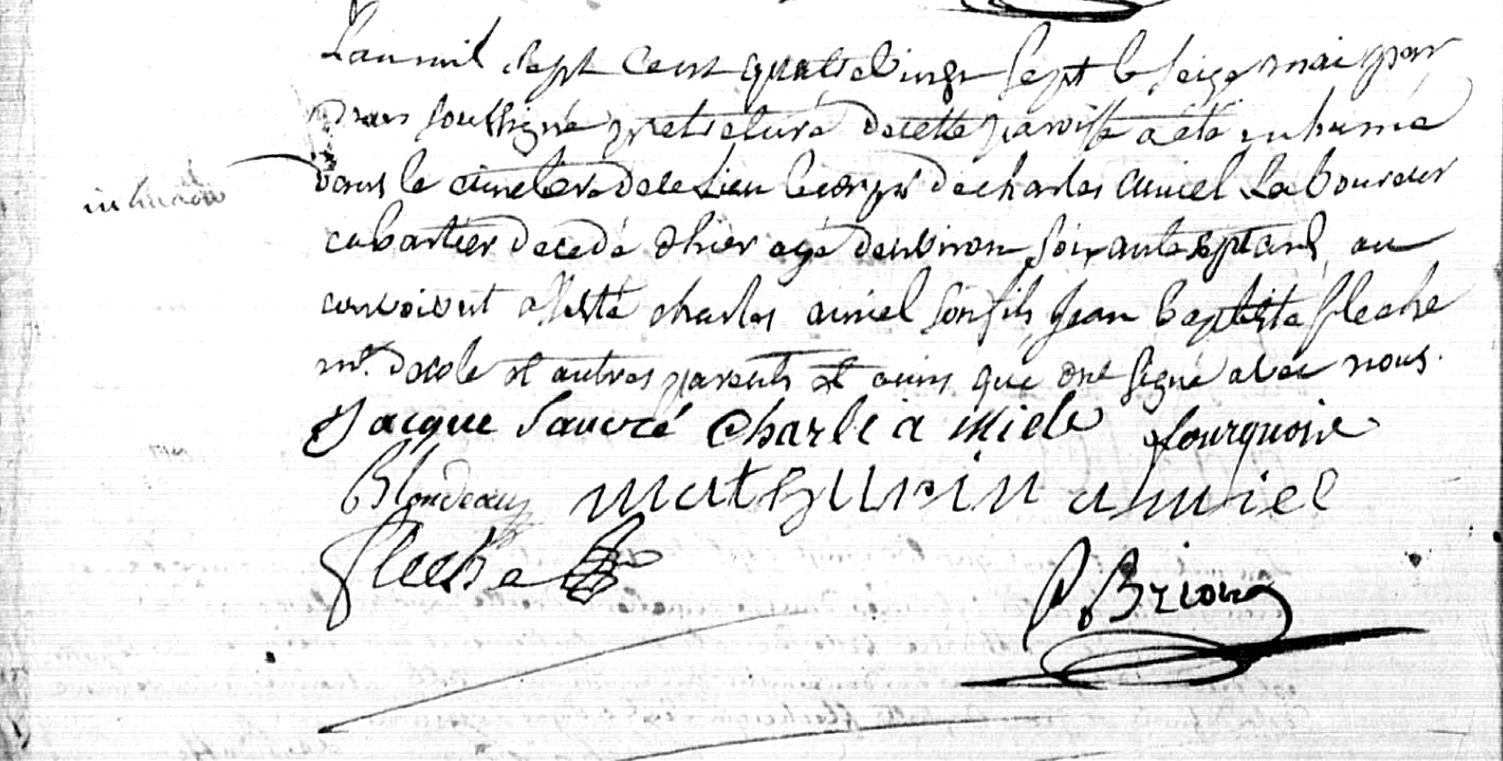 L'an mil sept cent quatrevingt sept le seize mai par
nous soussigné pretre curé de cette paroisse a été inhumé
inhumation
dans le cimetiere de ce Lieu le corps de charles amiel Laboureur
cabartier decedé d'hier agé d'environ soixante sept ans, au
convoi ont assisté charles amiel son fils, Jean baptiste fleche
mtre d'ecole et autres parents et amis qui ont signé avec nous.
Jacque Sauvcé Charle a miele fourquoire
Blondeau mathurin a miel
fleche
P. Brion